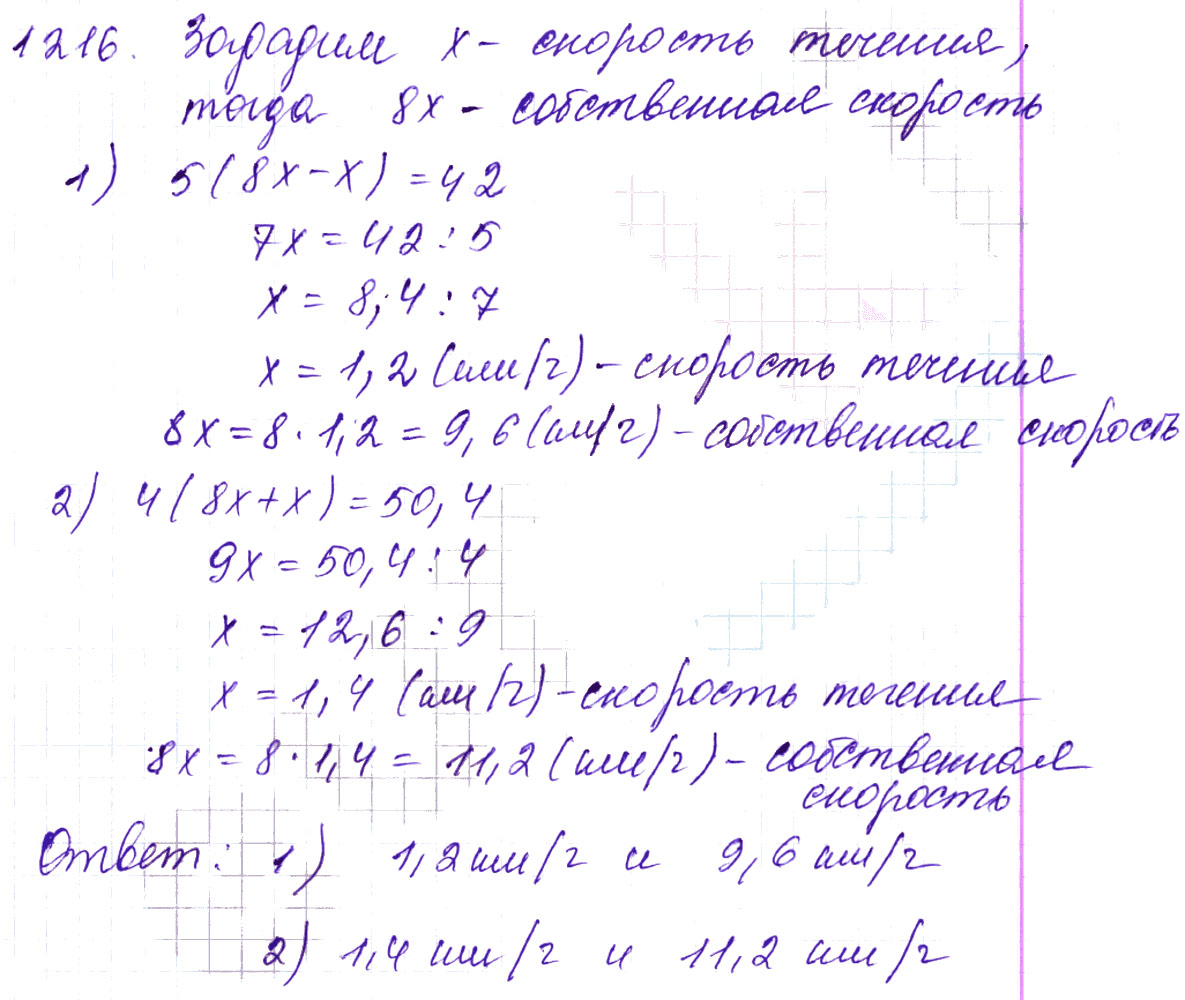 1216. Зададим x - скорость течения,
тогда 8x - собственная скорость
1) 5(8x-x) = 42
7x = 42 : 5
x = 8,4 : 7
x = 1,2 (км/ч) - скорость течения
8x = 8 · 1,2 = 9,6 (км/ч) - собственная скорость
2) 4(8x+x) = 50,4
9x = 50,4 : 4
x = 12,6 : 9
x = 1,4 (км/ч) - скорость течения
8x = 8 · 1,4 = 11,2 (км/ч) - собственная
скорость
Ответ: 1) 1,2 км/ч и 9,6 км/ч
2) 1,4 км/ч и 11,2 км/ч